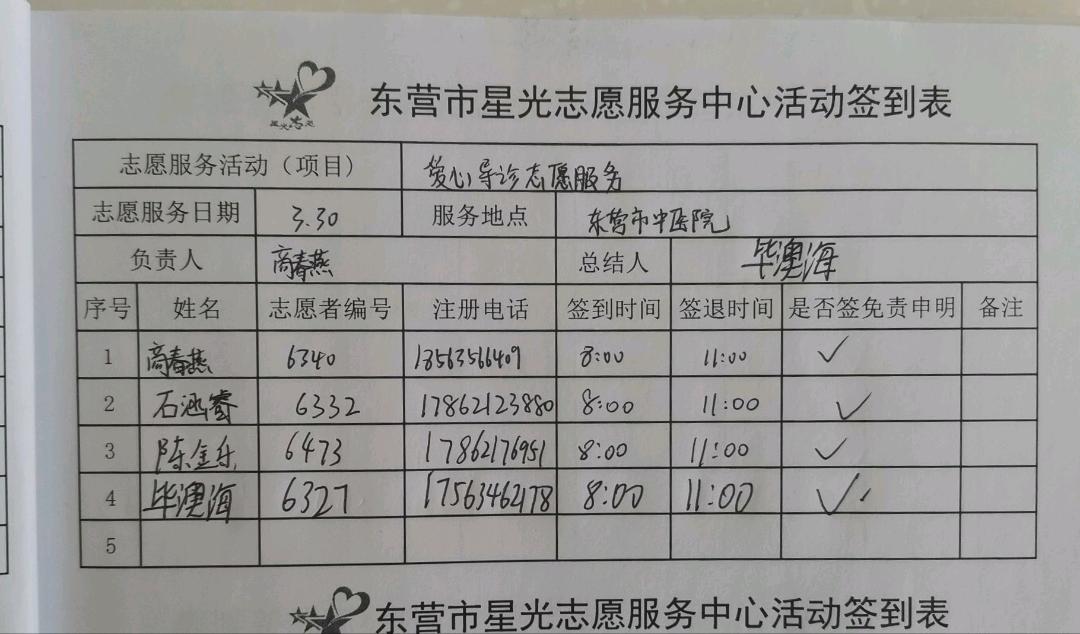 东营市星光志愿服务中心活动签到表
志愿服务活动（项目） 爱心导诊志愿服务
志愿服务日期 3.30 服务地点 东营市中医院
负责人 高春燕 总结人 毕澳海
序号 姓名 志愿者编号 注册电话 签到时间 签退时间 是否签免责申明 备注
1 高春燕 6340 13563566409 8:00 11:00 ✓
2 石涵睿 6332 17862123880 8:00 11:00 ✓
3 陈金乐 6473 17862176951 8:00 11:00 ✓
4 毕澳海 6327 17563462178 8:00 11:00 ✓
5
东营市星光志愿服务中心活动签到表